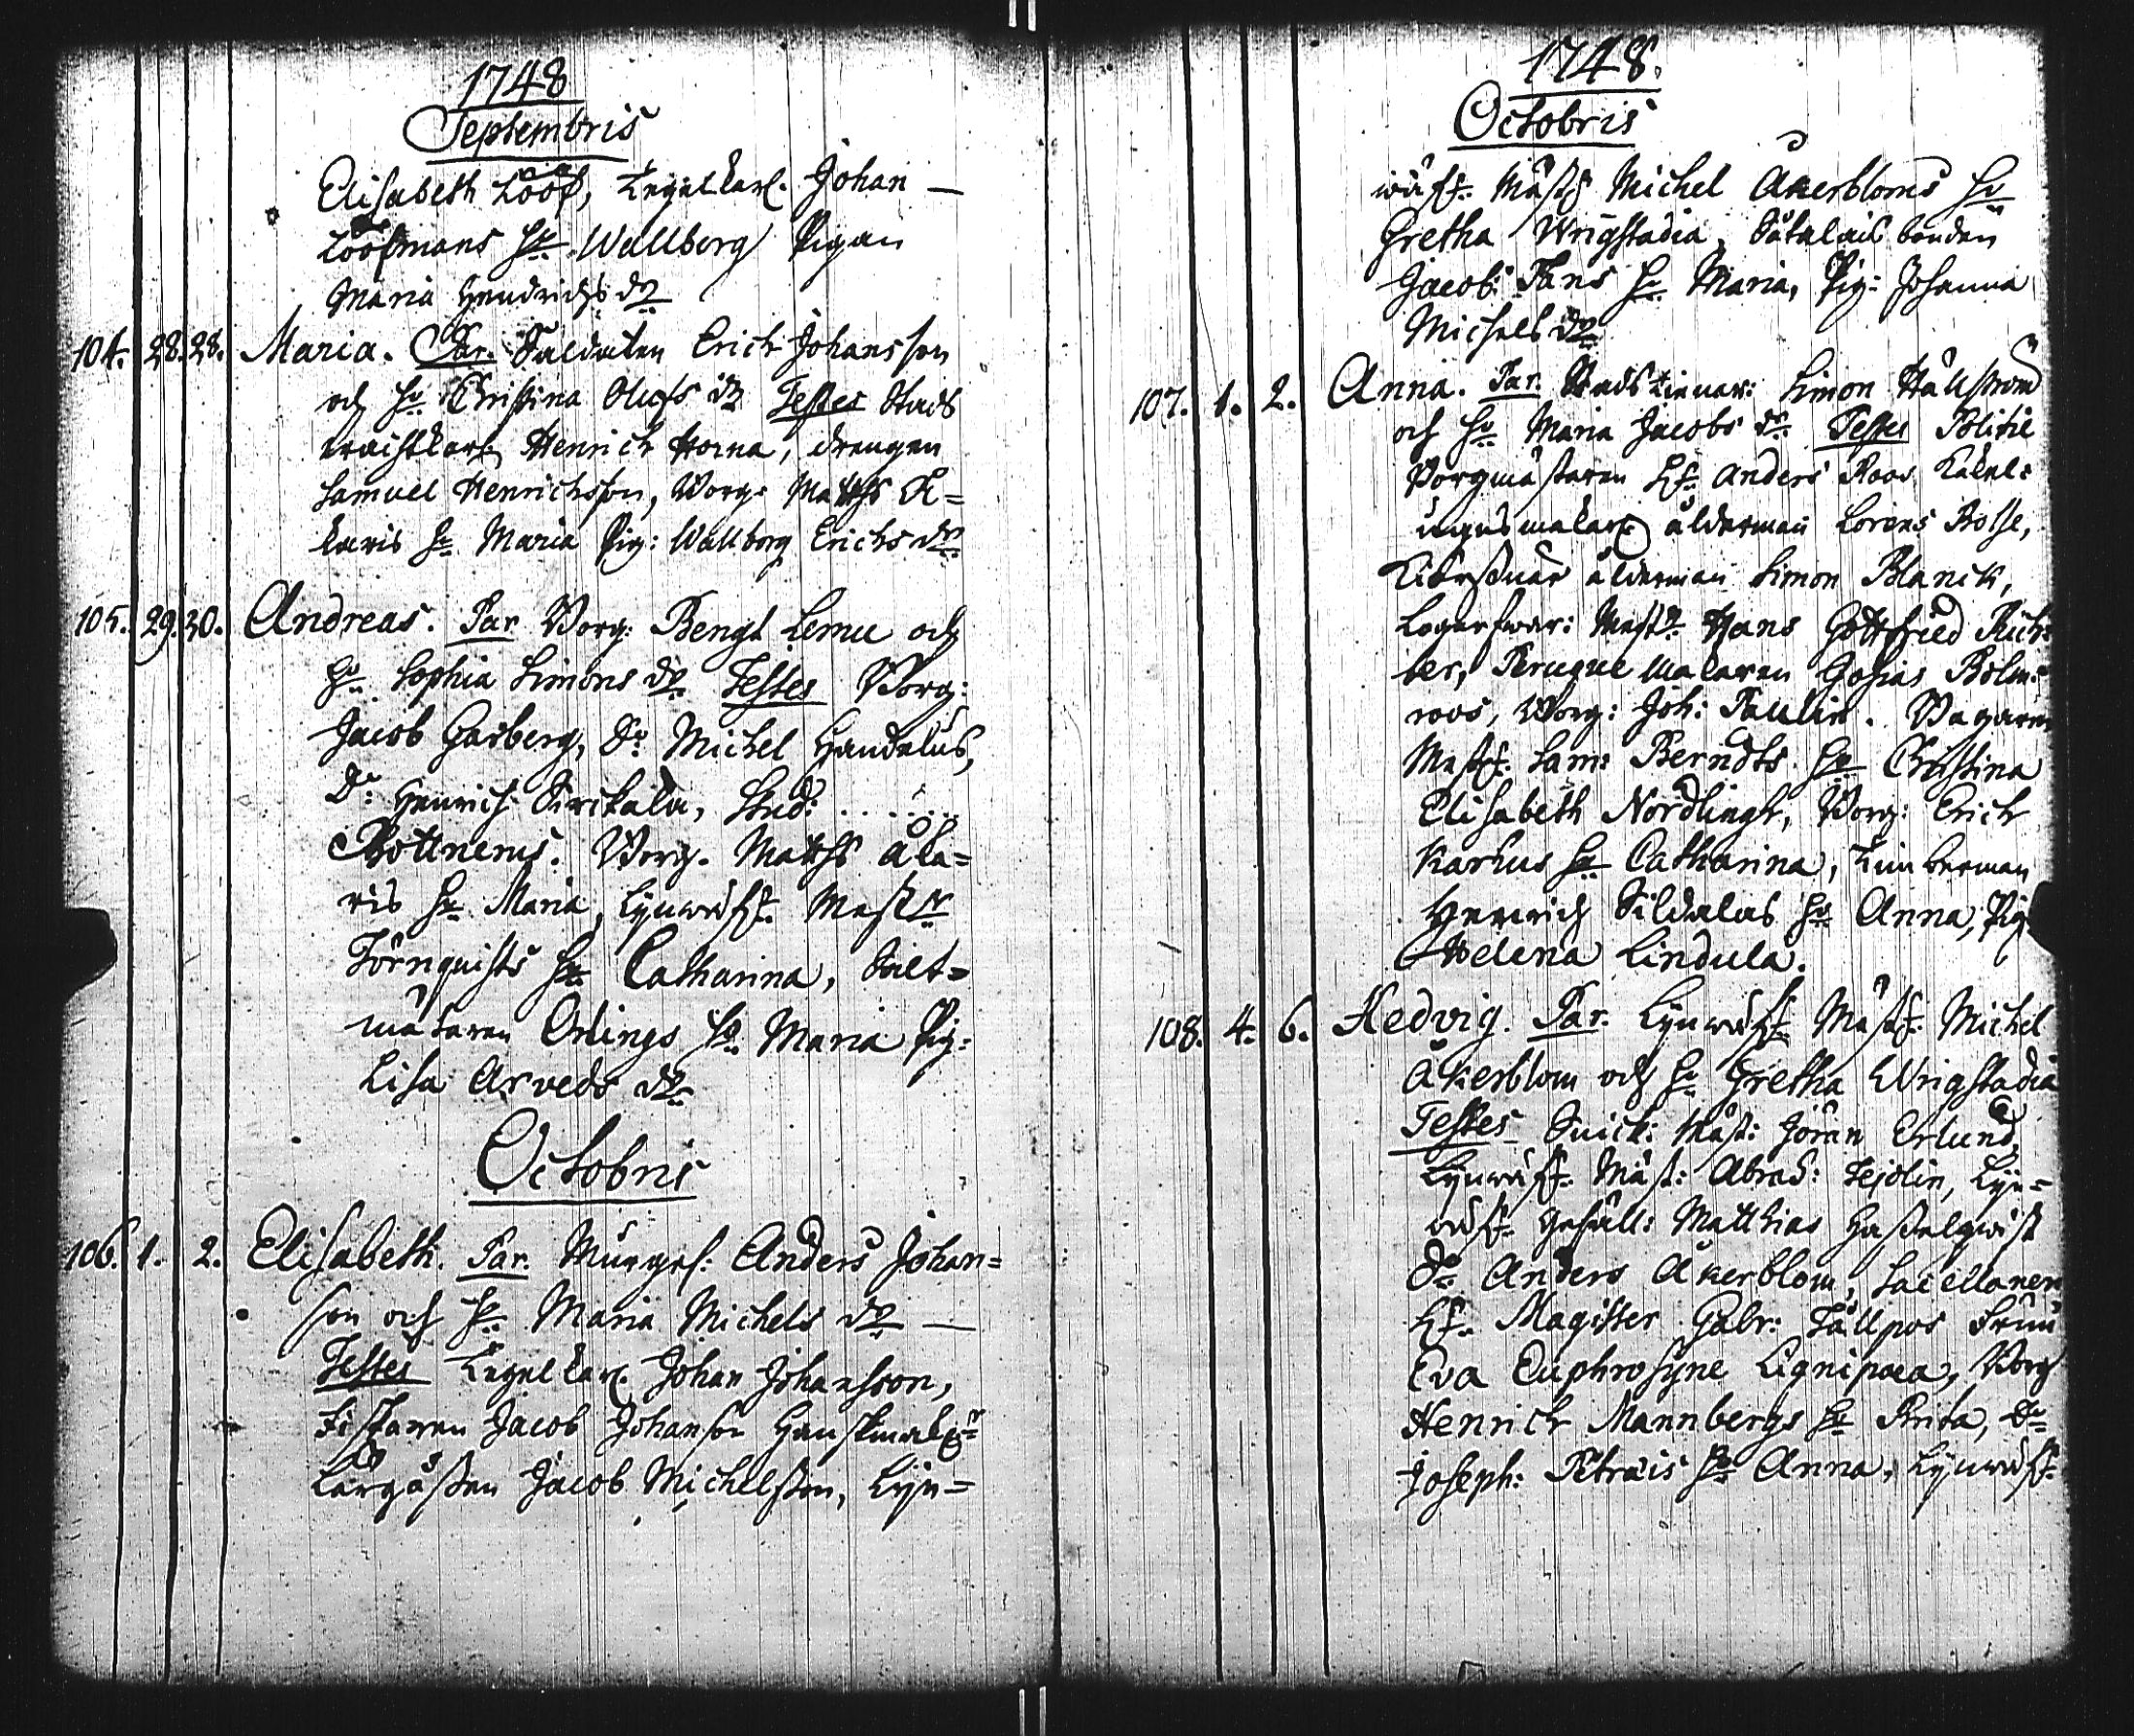 1748
Septembris
Elisabeth Lööf, Tegelkarl. Johan
Lööfmans Hu Wallborg Pigan
Maria Hendrichs dr
104. 28. 28. Maria. Par. Saldaten Erich Johansson
och Hu Christina Olufs dr Testes Stads
wachtkarl Henrich Horna, drengen
Samuel Henrichsson, Borg: Matths A=
laris Hu Maria Pig: Wallborg Erichs dr
105. 29. 30. Andreas. Par Borg: Bengt Lemu och
Hu Sophia Simons dr Testes Borg:
Jacob Garberg, Do Michel Handelus,
Do Henrich Sirckala, Stud: . . . . .
Bottnerus. Borg. Matths Ala=
ris Hu Maria, Lijnwäf. Mestr
Törnquists Hu Catharina, Salt=
mätaren Orlings Hu Maria Pig:
Lisa Arveds dr
Octobris
106. 1. 2. Elisabeth. Par. Murges: Anders Johan=
son och Hu Maria Michels dr
Testes Tegelkarl. Johan Johansson,
Fiskaren Jacob Johanson
Jacob Michelsson, Lijn=
1748.
Octobris
wäf. Mäst Michel Åkerbloms Hu
Gretha Wrigstadia, bonden
Jacob: Pans Hu Maria, Pig: Johanna
Michels dr
107. 1. 2. Anna. Par. Stads tienar: Simon Hällström
och Hu Maria Jacobs dr Testes Politie
Borgmästaren Hr Anders Roos Kakel=
ungnsmakar ålderman Lorens Bosse,
ålderman Simon Blanck,
Mestr Hans Gottfried Rich=
ter, Peruquemakaren Gosias Bolm=
roos, Borg: Joh: Paulin. Bagaren
Mest. Sam: Berndts Hu Christina
Elisabeth Nordlingh, Borg: Erich
Karhus Hu Catharina, Timberman
Henrich Sildalas Hu Anna, Pig
Helena Lindula.
108. 4. 6. Hedvig. Par. Lijnwäf. Mäst. Michel
Åkerblom och Hu Gretha Wrigstadia
Testes Snick: Mäst: Jöran Erlund,
Lijnwäf. Mäst: Abrah: Tejolin, Lijn=
wäf. Gesäll: Matthias Hasselqwist
Do Anders Åkerblom, Sacellanen
Hr Magister Gabr: Fruu
Eva Euphrosyne Lignipaea, Borg
Henrich Mannbergs Hu Brita, Do
Joseph: Petrais Hu Anna, Lijnwäf.